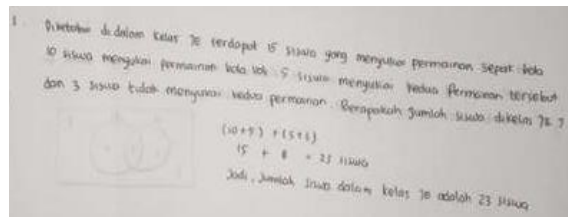 1. Diketahui di dalam kelas 7E terdapat 15 siswa yang menyukai permainan sepak bola
10 siswa menyukai permainan bola voli. 5 siswa menyukai kedua permainan tersebut
dan 3 siswa tidak menyukai kedua permainan. Berapakah jumlah siswa dikelas 7E ?
(10+5) + (5+3)
15 + 8 = 23 siswa
Jadi, Jumlah siswa dalam kelas 7E adalah 23 siswa